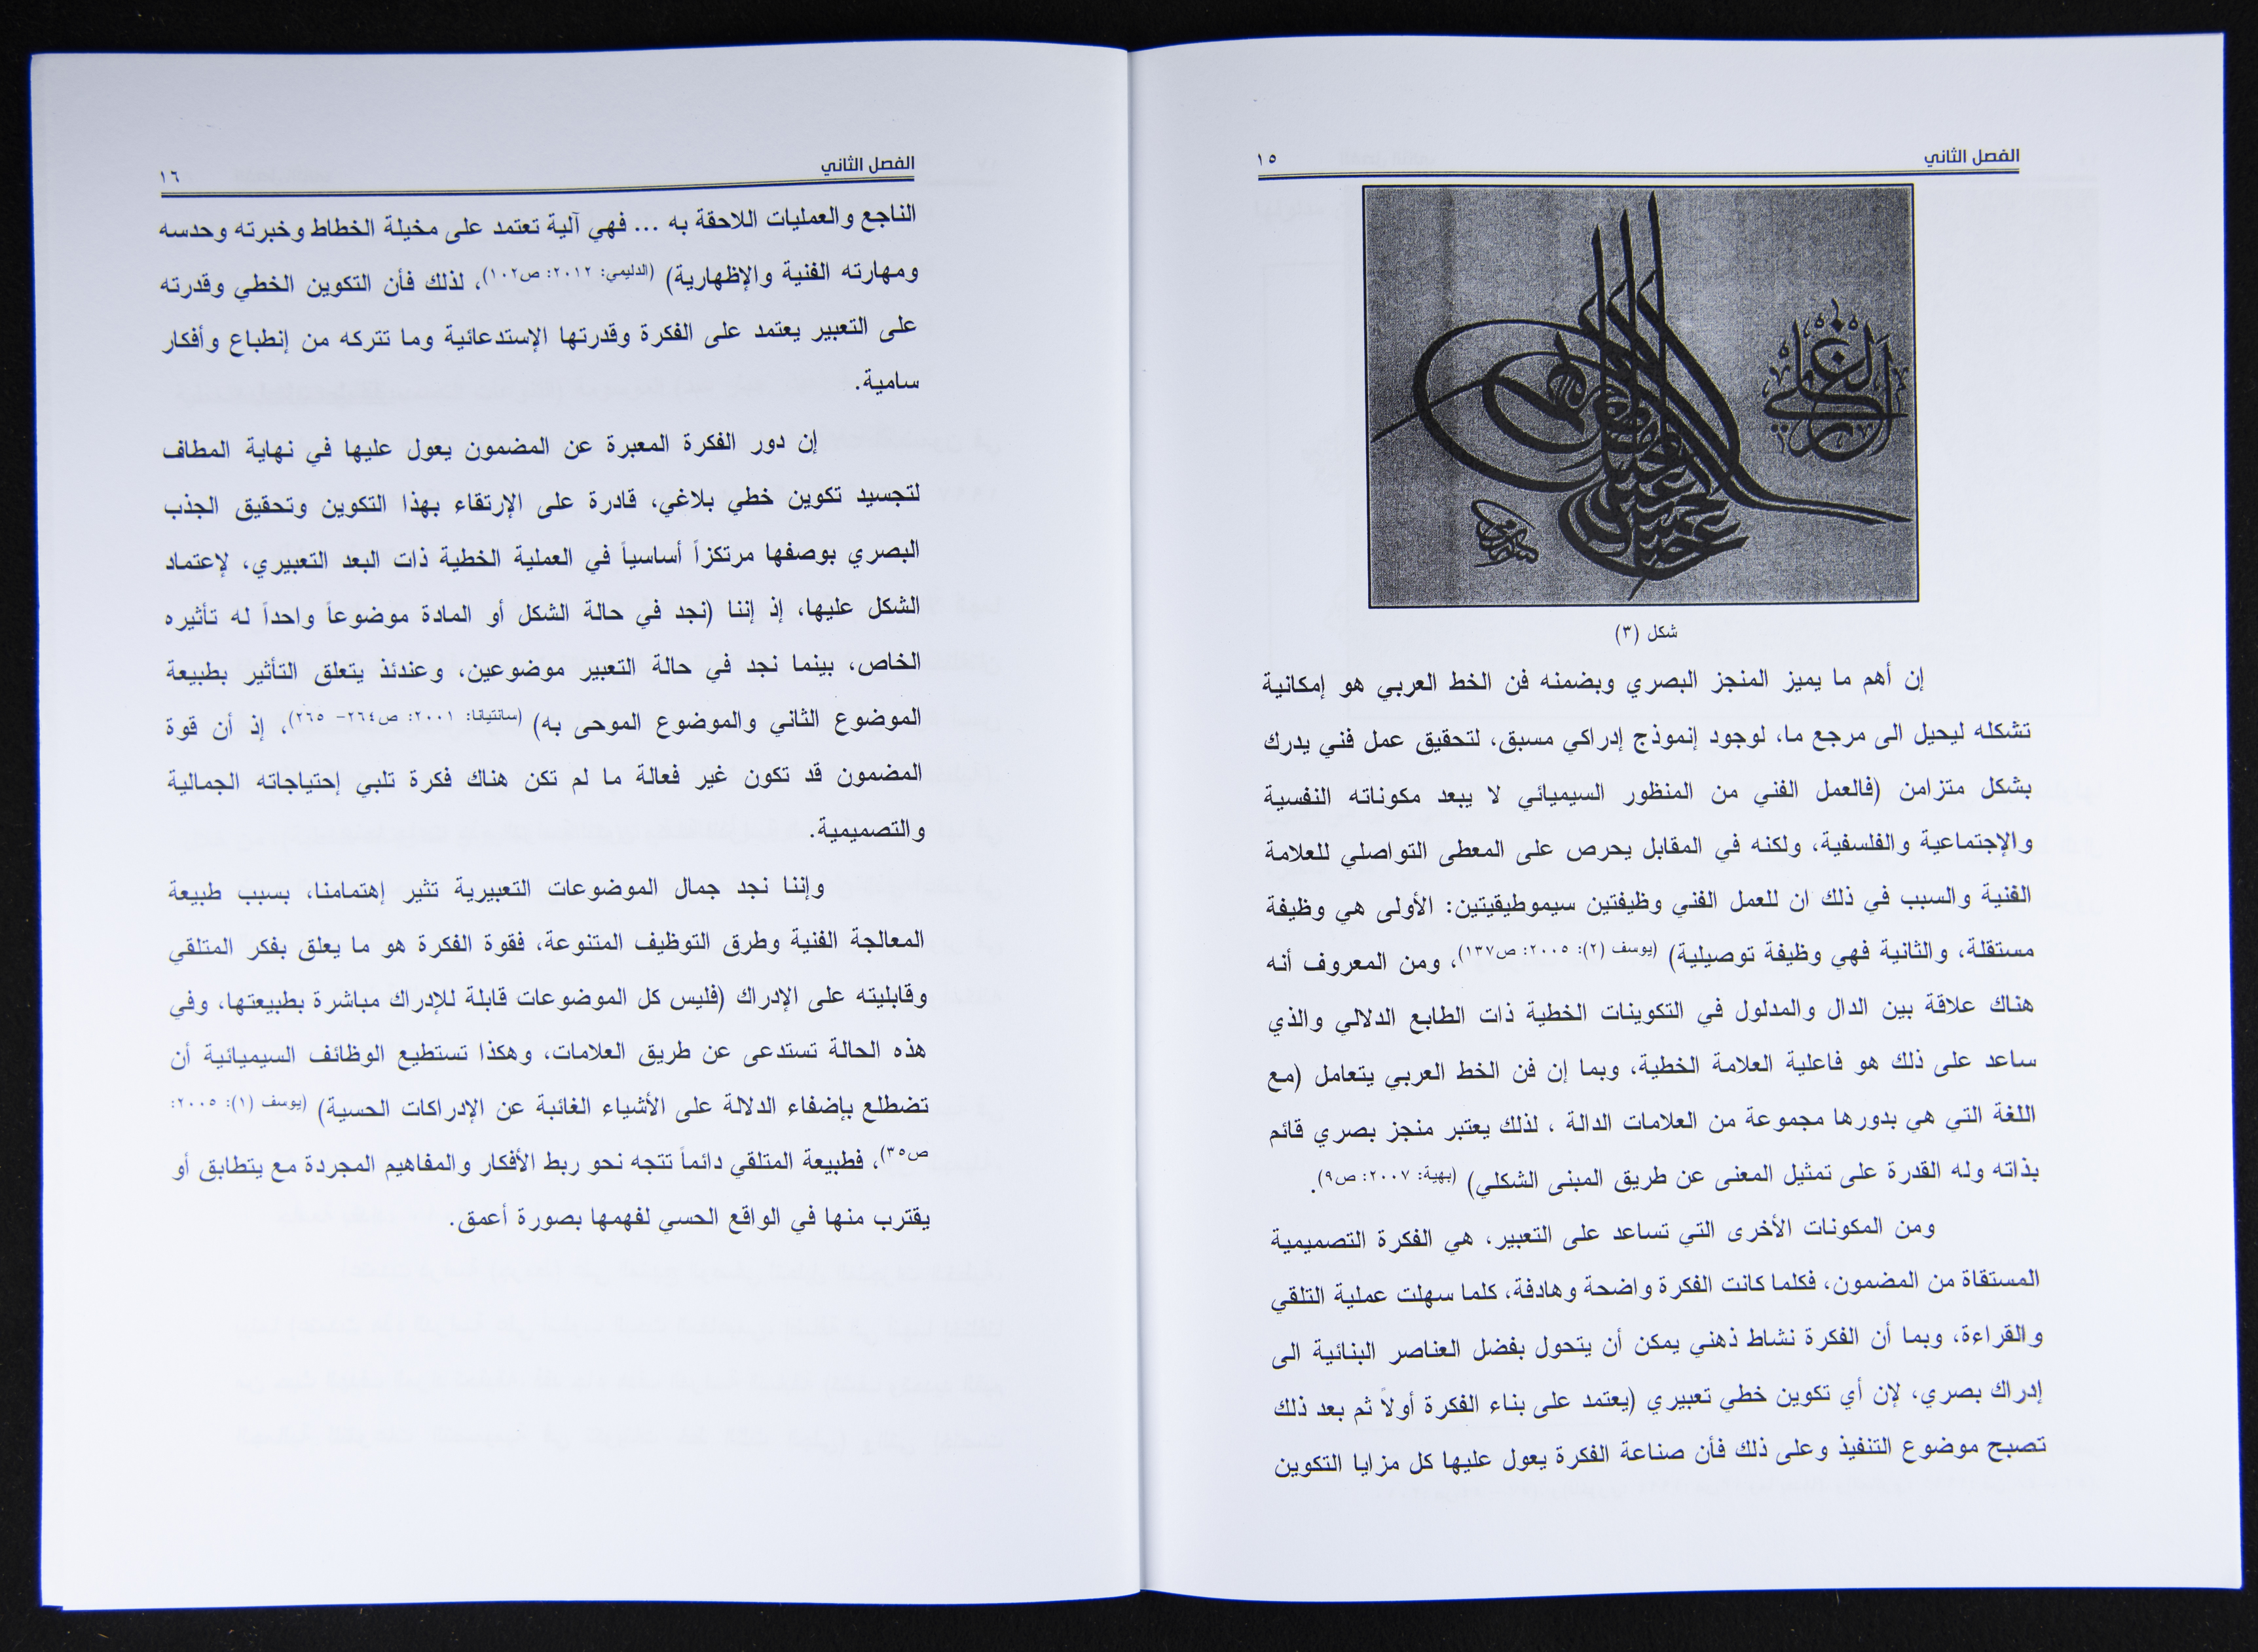 الفصل الثاني
١٥
شكل (٣)
إن أهم ما يميز المنجز البصري وبضمنه فن الخط العربي هو إمكانية
تشكله ليحيل الى مرجع ما، لوجود إنموذج إدراكي مسبق، لتحقيق عمل فني يدرك
بشكل متزامن (فالعمل الفني من المنظور السيميائي لا يبعد مكوناته النفسية
والإجتماعية والفلسفية، ولكنه في المقابل يحرص على المعطى التواصلي للعلامة
الفنية والسبب في ذلك ان للعمل الفني وظيفتين سيموطيقيتين: الأولى هي وظيفة
مستقلة، والثانية فهي وظيفة توصيلية) (يوسف (٢): ٢٠٠٥: ص١٣٧)، ومن المعروف أنه
هناك علاقة بين الدال والمدلول في التكوينات الخطية ذات الطابع الدلالي والذي
ساعد على ذلك هو فاعلية العلامة الخطية، وبما إن فن الخط العربي يتعامل (مع
اللغة التي هي بدورها مجموعة من العلامات الدالة ، لذلك يعتبر منجز بصري قائم
بذاته وله القدرة على تمثيل المعنى عن طريق المبنى الشكلي) (بهية: ٢٠٠٧: ص٩).
ومن المكونات الأخرى التي تساعد على التعبير، هي الفكرة التصميمية
المستقاة من المضمون، فكلما كانت الفكرة واضحة وهادفة، كلما سهلت عملية التلقي
والقراءة، وبما أن الفكرة نشاط ذهني يمكن أن يتحول بفضل العناصر البنائية الى
إدراك بصري، لإن أي تكوين خطي تعبيري (يعتمد على بناء الفكرة أولاً ثم بعد ذلك
تصبح موضوع التنفيذ وعلى ذلك فأن صناعة الفكرة يعول عليها كل مزايا التكوين
الفصل الثاني
١٦
الناجع والعمليات اللاحقة به ... فهي آلية تعتمد على مخيلة الخطاط وخبرته وحدسه
ومهارته الفنية والإظهارية) (الدليمي: ٢٠١٢: ص١٠٢)، لذلك فأن التكوين الخطي وقدرته
على التعبير يعتمد على الفكرة وقدرتها الإستدعائية وما تتركه من إنطباع وأفكار
سامية.
إن دور الفكرة المعبرة عن المضمون يعول عليها في نهاية المطاف
لتجسيد تكوين خطي بلاغي، قادرة على الإرتقاء بهذا التكوين وتحقيق الجذب
البصري بوصفها مرتكزاً أساسياً في العملية الخطية ذات البعد التعبيري، لإعتماد
الشكل عليها، إذ إننا (نجد في حالة الشكل أو المادة موضوعاً واحداً له تأثيره
الخاص، بينما نجد في حالة التعبير موضوعين، وعندئذ يتعلق التأثير بطبيعة
الموضوع الثاني والموضوع الموحى به) (سانتيانا: ٢٠٠١: ص٢٦٤- ٢٦٥)، إذ أن قوة
المضمون قد تكون غير فعالة ما لم تكن هناك فكرة تلبي إحتياجاته الجمالية
والتصميمية.
وإننا نجد جمال الموضوعات التعبيرية تثير إهتمامنا، بسبب طبيعة
المعالجة الفنية وطرق التوظيف المتنوعة، فقوة الفكرة هو ما يعلق بفكر المتلقي
وقابليته على الإدراك (فليس كل الموضوعات قابلة للإدراك مباشرة بطبيعتها، وفي
هذه الحالة تستدعى عن طريق العلامات، وهكذا تستطيع الوظائف السيميائية أن
تضطلع بإضفاء الدلالة على الأشياء الغائبة عن الإدراكات الحسية) (يوسف (١): ٢٠٠٥:
ص٣٥)، فطبيعة المتلقي دائماً تتجه نحو ربط الأفكار والمفاهيم المجردة مع يتطابق أو
يقترب منها في الواقع الحسي لفهمها بصورة أعمق.